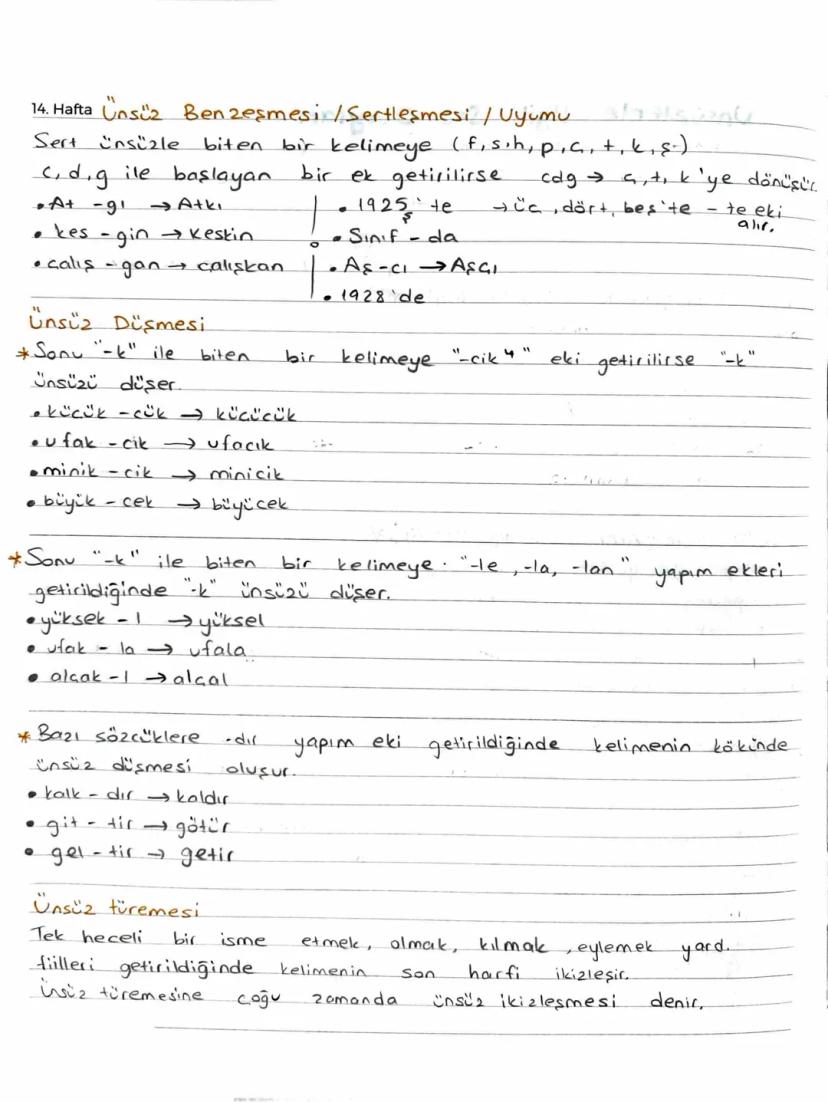 14. Hafta Ünsüz Benzeşmesi / Sertleşmesi / Uyumu
Sert ünsüzle biten bir kelimeye (f, s, h, p, ç, t, k, ş.)
c, d, g ile başlayan bir ek getirilirse cdg → ç, t, k'ye dönüşür.
• At - gı → Atkı
• kes - gin → keskin
• çalış - gan → çalışkan
• 1925'te → üç, dört, beş'te - te eki
ş
alır.
• Sınıf - da
• Aş-cı → Aşçı
• 1928'de
Ünsüz Düşmesi
* Sonu "-k" ile biten bir kelimeye "-cik⁴" eki getirilirse "-k"
ünsüzü düşer.
• küçük - cük → küçücük
• ufak - cık → ufacık
• minik - cik → minicik
• büyük - cek → büyücek
* Sonu "-k" ile biten bir kelimeye. "-le, -la, -lan" yapım ekleri
getirildiğinde "-k" ünsüzü düşer.
• yüksek - l → yüksel
• ufak - la → ufala
• alçak - l → alçal
* Bazı sözcüklere -dır yapım eki getirildiğinde kelimenin kökünde
ünsüz düşmesi oluşur.
• kalk - dır → kaldır
• git - tir → götür
• gel - tir → getir
Ünsüz türemesi
Tek heceli bir isme etmek, olmak, kılmak, eylemek yard.
fiilleri getirildiğinde kelimenin son harfi ikizleşir.
Ünsüz türemesine çoğu zamanda ünsüz ikizleşmesi denir.